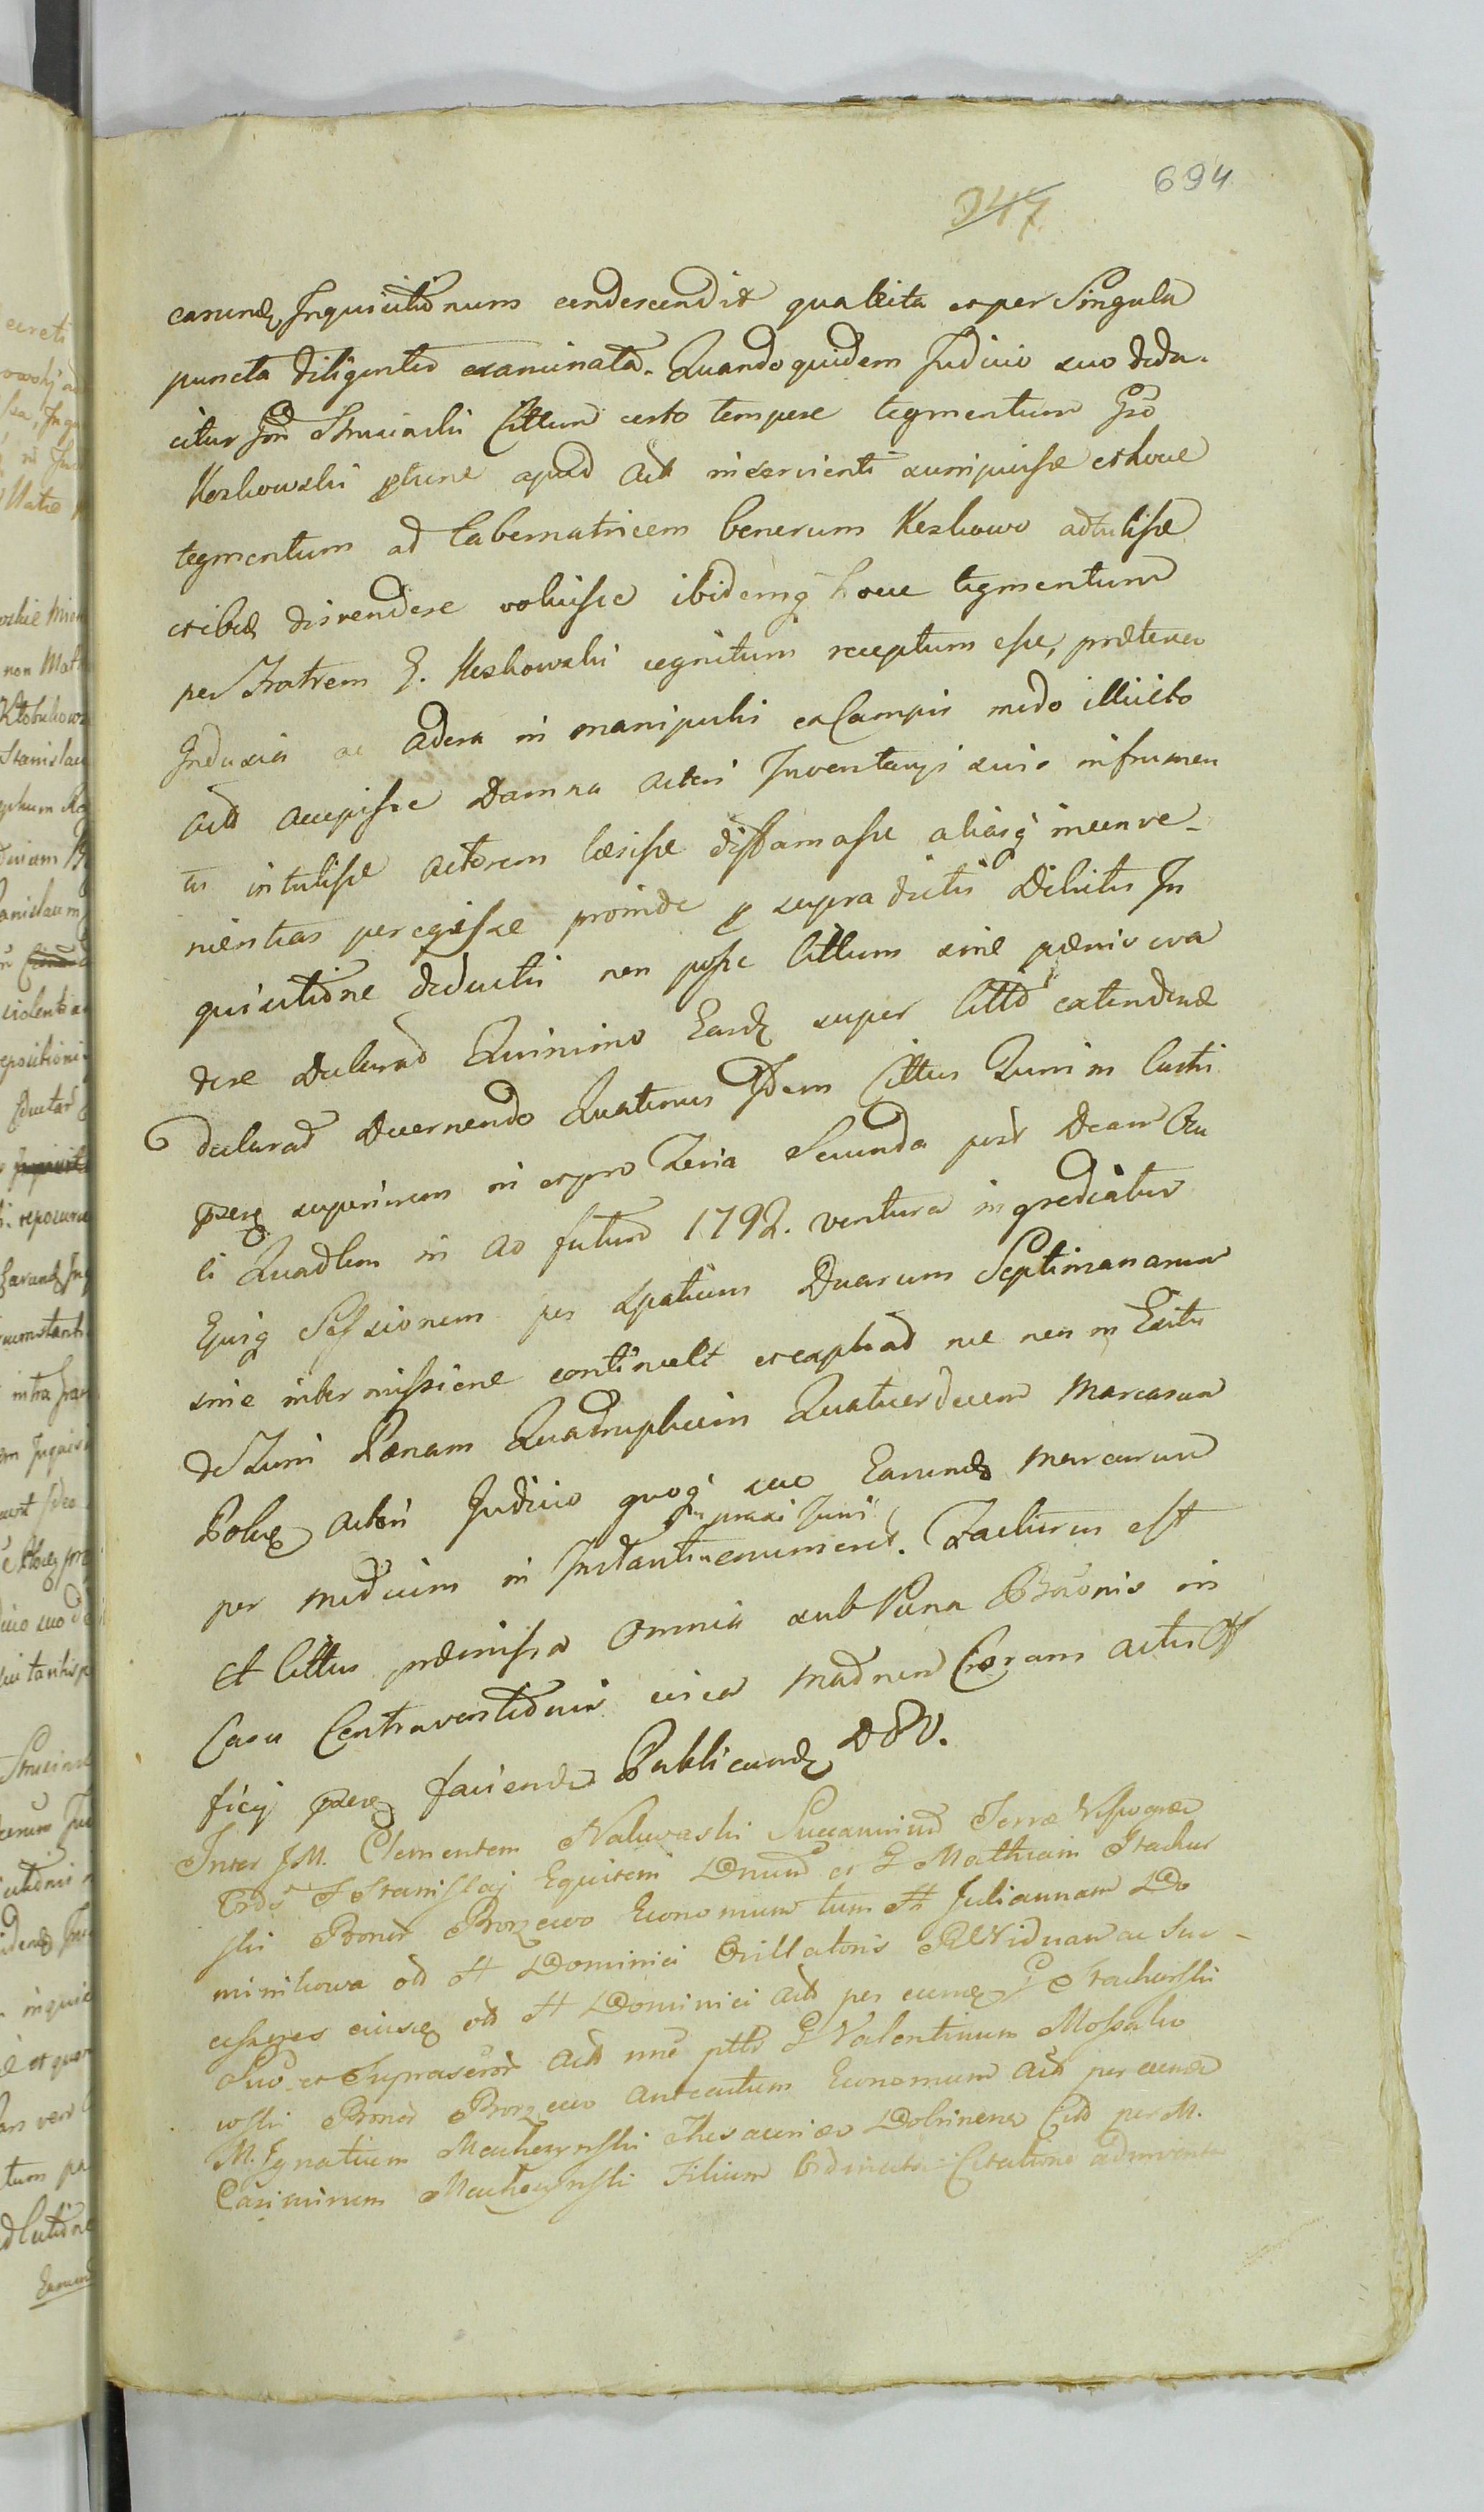 694
347
earund Inquisitionum condescendit qua lecta et per Singula
puncta diligenter examinata. Quandoquidem Judicio suo dedu-
citur Gnd Strucinski Cittum certo tempore tegmentum Gso
Kozkowski ptunc apud Act inservienti surripuisse et hocce
tegmentum ad Tabernatricem bonorum Kozkowo adtulisse
et ibid divendere voluisse ibidemq hocce tegmentum
per Fratrem G. Kozkowski cognitum receptum esse, præterea
Indusia ac Adera in manipulis ex Campis modo illicito
Act accepisse Damna Actori Inventarys suis in frumen
tis intulisse Actorem læsisse diffamasse aliasq inconve-
nientias peregisse proinde p supra dictis Debitis In
quisitione deductis non posse Cittum sine pænis eva
dere declarat Quinimo Easd super Citto extendend
declarat Decernendo Quatenus Idem Cittus Turrim Castri
pzens superiorem in et pro Feria Secunda post Dcam Ocu
li Quadlem in Ao futuro 1792. ventura ingrediatur
Ejusq Sessionem per Spatium Duarum Septimanarum
sine intermissione continuet et expleat nec non in Exitu
de Turri Pænam Quadruplicem Quatuordecem Marcarum
Polnz Actori Judicio quoq suo Earund Marcarum
in praxi Turri
per medium in Instanti enumeret. Facturus est
Et Cittus præmissa Omnia sub Pæna Bñonis in
Casu Contraventionis circa Madnem Coram Actis Of
ficij pzens faciende Publicand DDV.
Inter JM. Clementem Nakwaski Succamerind Terræ Wyssogræd
Ordis S Stanislaj Equitem Dnum et G Mathiam Stachur
ski Bonor Borzewo Economum tum H Juliannam Do
minikowa od H Dominici Orillatoris Viduam ac Suc-
cessores eiusd od H Dominici Act per eumd G Stachurski
Suo et Supraseror Act nne ptto G Valentinum Mossako
wski Bonor Borzewo anteactum Economum Act per eumd
M. Ignatium Machczynski Thesaurar Dobrinen Citt per M.
Casimirum Machczynski Filium Ordinata Citatione adinventa